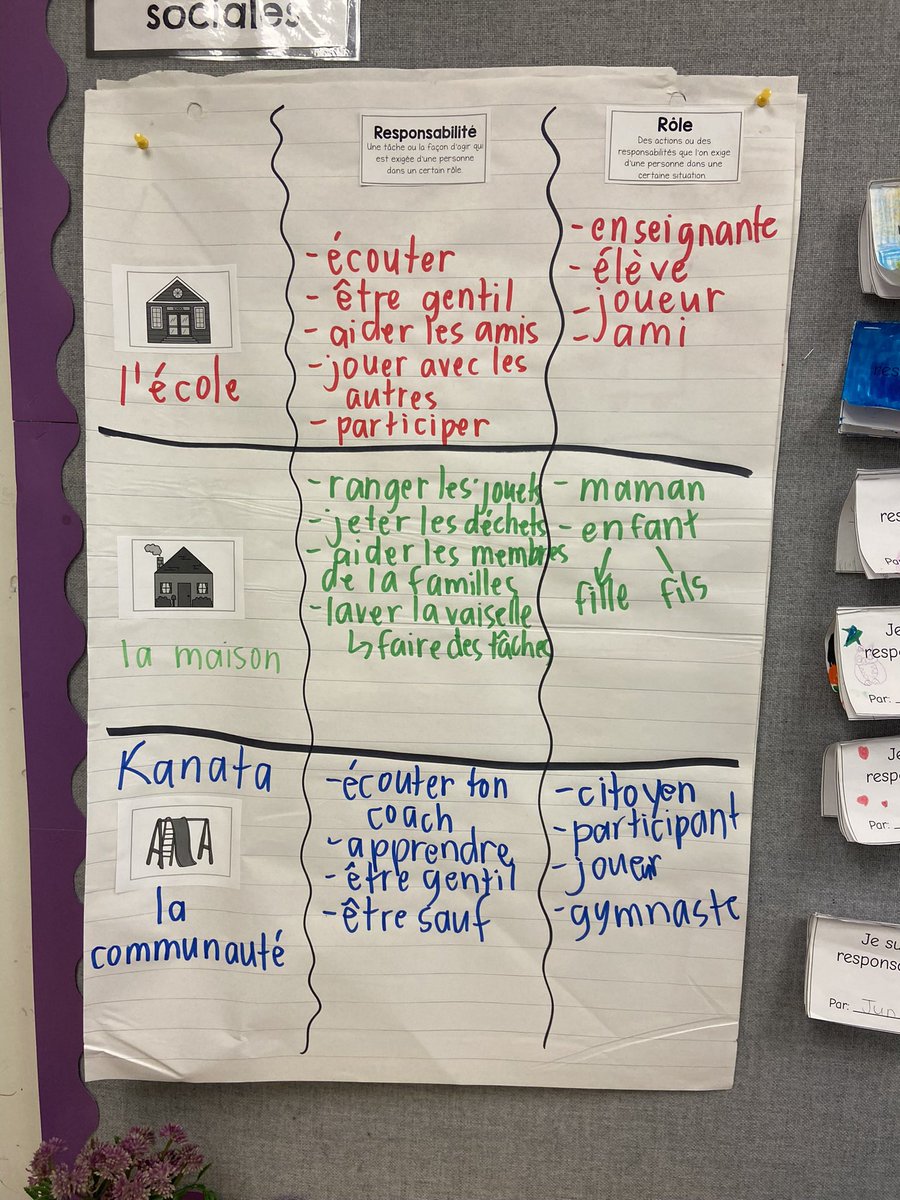 sociales
Responsabilité
Une tâche ou la façon d'agir qui
est exigée d'une personne
dans un certain rôle.
Rôle
Des actions ou des
responsabilités que l'on exige
d'une personne dans une
certaine situation.
l'école
- écouter
- être gentil
- aider les amis
- jouer avec les
autres
- participer
- enseignante
- élève
- joueur
- ami
la maison
- ranger les jouets
- jeter les déchets
- aider les membres
de la familles
- laver la vaiselle
↳ faire des tâches
- maman
- enfant
fille fils
Kanata
la
communauté
- écouter ton
coach
- apprendre
- être gentil
- être sauf
- citoyen
- participant
- joueur
- gymnaste
res
Je
resp
Par:
Je
resp
Par:
Je su
respons
Par: Jun